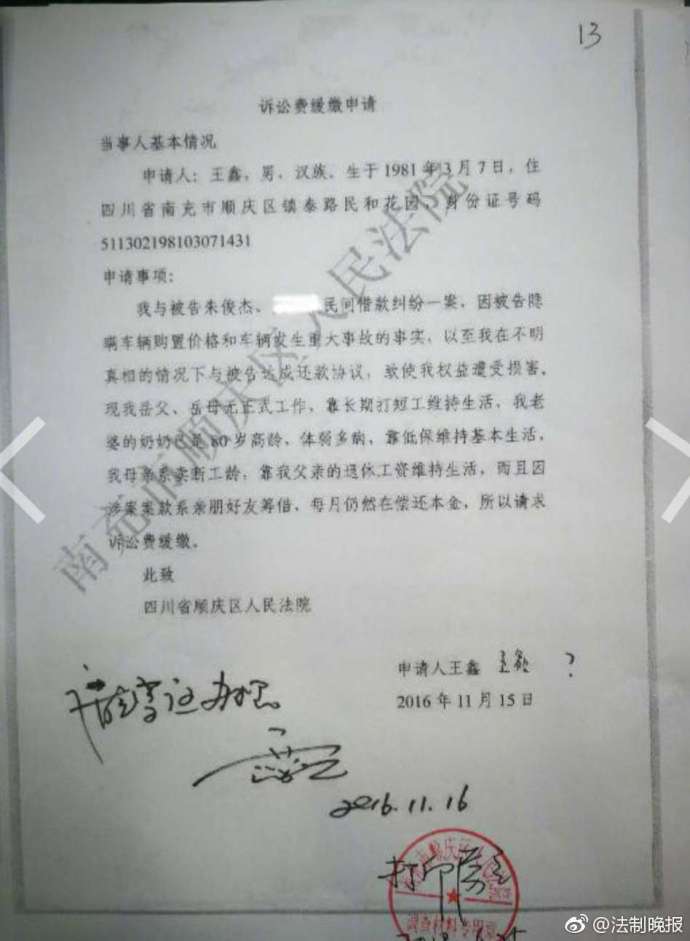 13
诉讼费缓缴申请
当事人基本情况
申请人：王鑫，男，汉族，生于1981年3月7日，住
四川省南充市顺庆区镇泰路民和花园，身份证号码
511302198103071431
申请事项：
我与被告朱俊杰、民间借款纠纷一案，因被告隐
瞒车辆购置价格和车辆发生重大事故的事实，以至我在不明
真相的情况下与被告达成还款协议，致使我权益遭受损害。
现我岳父、岳母无正式工作，靠长期打短工维持生活，我老
婆的奶奶已是80岁高龄，体弱多病，靠低保维持基本生活，
我母亲系卖断工龄，靠我父亲的退休工资维持生活，而且因
涉案案款系亲朋好友筹借，每月仍然在偿还本金，所以请求
诉讼费缓缴。
此致
四川省顺庆区人民法院
申请人王鑫 王鑫 ？
2016年11月15日
2016.11.16
南充市顺庆区人民法院
@法制晚报